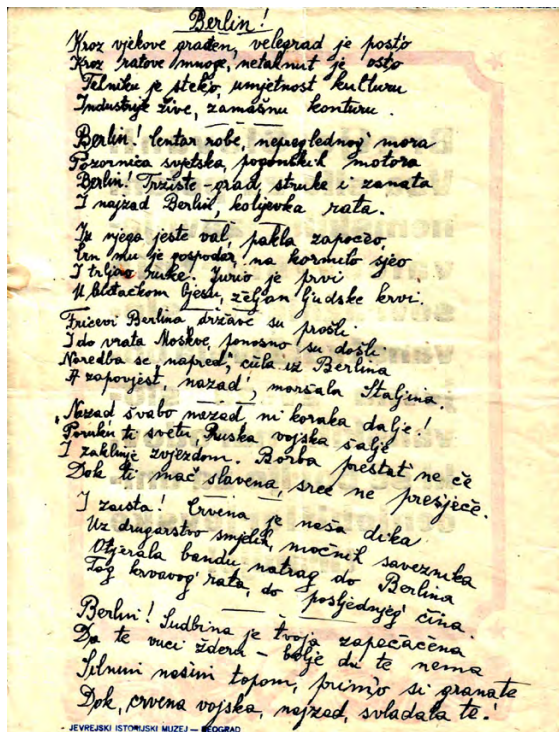 Berlin!
Kroz vjekove građen, velegrad je posto
Kroz ratove mnoge, netaknut je osto
Tehniku je steko, umjetnost kulturu
Industrije žive, zamašnu konturu.
Berlin! Centar robe, nepreglednog mora
Pozornica svjetska, pogonskih motora
Berlin! Tržište-grad, struke i zanata
I najzad Berlin, koljevka rata.
Iz njega jeste val, pakla započeo,
Crn mu je gospodar, na kormilo sjeo
I trljao ruke. Jurio je prvi
U bjesu, željan ljudske krvi.
Fricevi Berlina države su prošli
I do vrata Moskve, ponosno su došli
Naredba se „napred", čula iz Berlina
A zapovjest, nazad, maršala Staljina.
„Nazad švabo nazad, ni koraka dalje!
Poruku ti svetu, Ruska vojska šalje
I zaklinje zvjezdom. Borba prestat ne će
Dok ti mač slavena, srce ne presječe.
I zaista! Crvena je naša dika
Uz drugarstvo smjelih, moćnih saveznika
Otjerala bandu, natrag do Berlina
Tog krvavog rata, do posljednjeg čina.
Berlin! Sudbina je tvoja zapečaćena
Da te vuci žderu - bolje da te nema
Silnim našim topom, primio si granate
Dok, crvena vojska, najzad, svladala te!
JEVREJSKI ISTORIJSKI MUZEJ — BEOGRAD